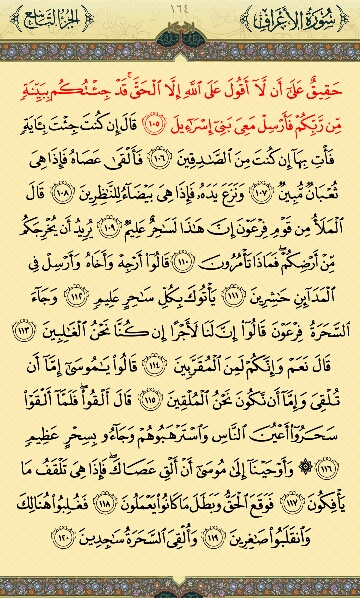 سُورَةُ الأَعْرَافِ ١٦٤ الجُزْءُ التَّاسِعُ
حَقِيقٌ عَلَىٰٓ أَن لَّآ أَقُولَ عَلَى ٱللَّهِ إِلَّا ٱلْحَقَّ ۚ قَدْ جِئْتُكُم بِبَيِّنَةٍ
مِّن رَّبِّكُمْ فَأَرْسِلْ مَعِىَ بَنِىٓ إِسْرَٰٓءِيلَ ١٠٥ قَالَ إِن كُنتَ جِئْتَ بِـَٔايَةٍ
فَأْتِ بِهَآ إِن كُنتَ مِنَ ٱلصَّٰدِقِينَ ١٠٦ فَأَلْقَىٰ عَصَاهُ فَإِذَا هِىَ
ثُعْبَانٌ مُّبِينٌ ١٠٧ وَنَزَعَ يَدَهُۥ فَإِذَا هِىَ بَيْضَآءُ لِلنَّٰظِرِينَ ١٠٨ قَالَ
ٱلْمَلَأُ مِن قَوْمِ فِرْعَوْنَ إِنَّ هَٰذَا لَسَٰحِرٌ عَلِيمٌ ١٠٩ يُرِيدُ أَن يُخْرِجَكُم
مِّنْ أَرْضِكُمْ ۖ فَمَاذَا تَأْمُرُونَ ١١٠ قَالُوٓا۟ أَرْجِهْ وَأَخَاهُ وَأَرْسِلْ فِى
ٱلْمَدَآئِنِ حَٰشِرِينَ ١١١ يَأْتُوكَ بِكُلِّ سَٰحِرٍ عَلِيمٍ ١١٢ وَجَآءَ
ٱلسَّحَرَةُ فِرْعَوْنَ قَالُوٓا۟ إِنَّ لَنَا لَأَجْرًا إِن كُنَّا نَحْنُ ٱلْغَٰلِبِينَ ١١٣
قَالَ نَعَمْ وَإِنَّكُمْ لَمِنَ ٱلْمُقَرَّبِينَ ١١٤ قَالُوا۟ يَٰمُوسَىٰٓ إِمَّآ أَن
تُلْقِىَ وَإِمَّآ أَن نَّكُونَ نَحْنُ ٱلْمُلْقِينَ ١١٥ قَالَ أَلْقُوا۟ ۖ فَلَمَّآ أَلْقَوْا۟
سَحَرُوٓا۟ أَعْيُنَ ٱلنَّاسِ وَٱسْتَرْهَبُوهُمْ وَجَآءُو بِسِحْرٍ عَظِيمٍ
١١٦ ۞ وَأَوْحَيْنَآ إِلَىٰ مُوسَىٰٓ أَنْ أَلْقِ عَصَاكَ ۖ فَإِذَا هِىَ تَلْقَفُ مَا
يَأْفِكُونَ ١١٧ فَوَقَعَ ٱلْحَقُّ وَبَطَلَ مَا كَانُوا۟ يَعْمَلُونَ ١١٨ فَغُلِبُوا۟ هُنَالِكَ
وَٱنقَلَبُوا۟ صَٰغِرِينَ ١١٩ وَأُلْقِىَ ٱلسَّحَرَةُ سَٰجِدِينَ ١٢٠